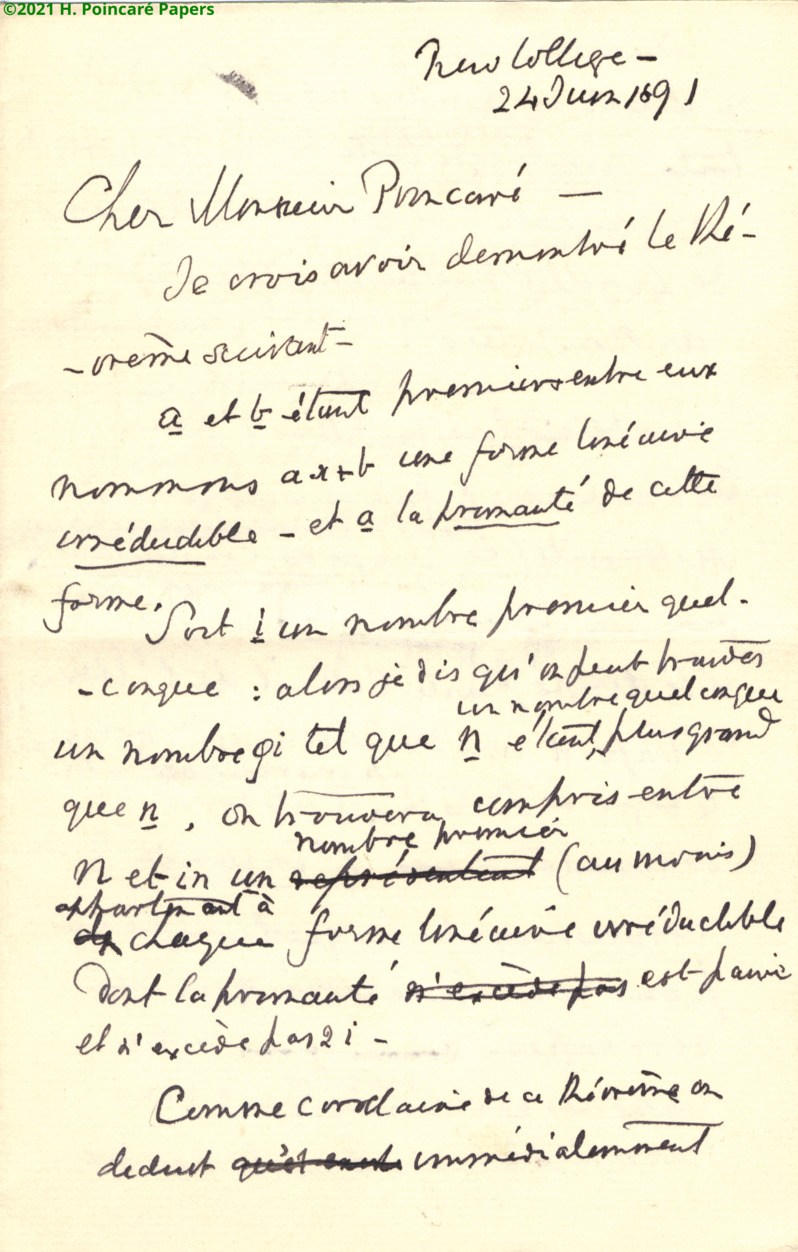 ©2021 H. Poincaré Papers
New College –
24 Juin 1891
Cher Monsieur Poincaré —
Je crois avoir demontré le thé-
-orème suivant –
a et b étant premiers entre eux
nommons ax+b une forme linéaire
irréducible – et a la primauté de cette
forme. Soit i un nombre premier quel-
-conque : alors je dis qu'on peut trouver
un nombre quelconque
un nombre φi tel que n étant plus grand
que n, on trouvera compris entre
nombre premier
n et in un représentant (au moins)
appartenant à
de chaque forme linéaire irréducible
dont la primauté n'excède pas est paire
et n'excède pas 2i –
Comme corollaire de ce théorème on
deduit qu'il existe immédiatement